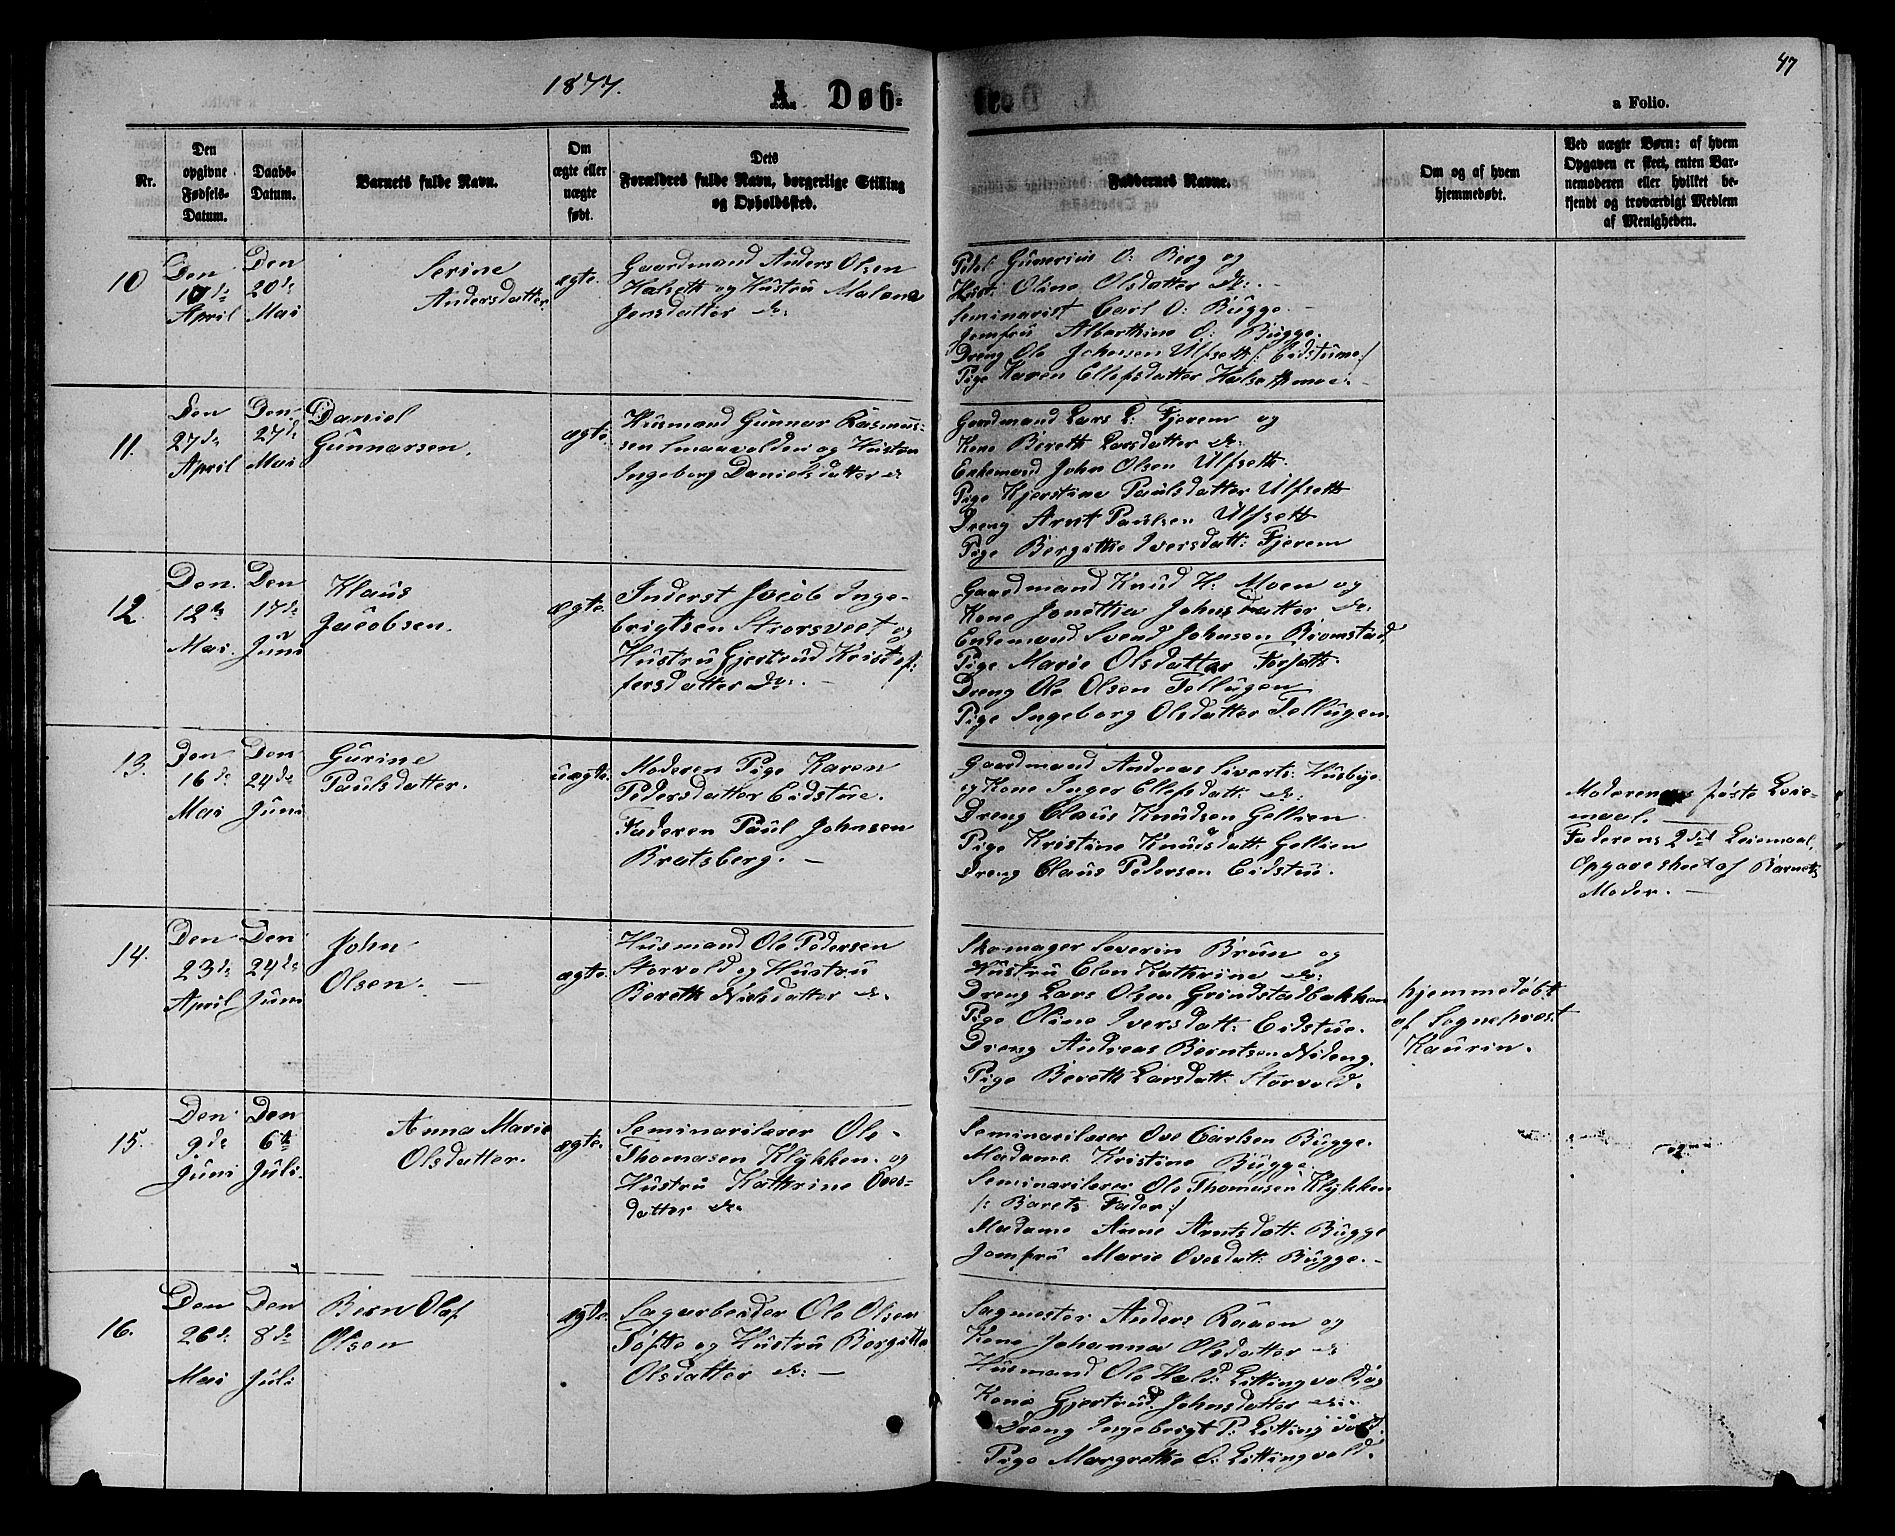 1877.
A. Døb-
te.
47
a Folio.
Nr.
Den opgivne Fødsels-Datum.
Daabs-Datum.
Barnets fulde Navn.
Om ægte eller uægte født.
Dets Forældres fulde Navn, borgerlige Stilling og Opholdssted.
Faddernes Navne.
Om og af hvem hjemmedøbt.
Ved uægte Børn: af hvem Opgaven er skeet, enten Barnemoderen eller hvilket bekjendt og troværdigt Medlem af Menigheden.
10
Den
10de
April
Den
20de
Mai
Serine
Andersdatter
ægte.
Gaardmand Anders Olsen
Halseth og Hustru Malene
Jensdatter do:
Gunerius O: Berg og
Hust: Oline Olsdatter do: -
Seminarist Carl O: Bugge. -
Jomfru Alberthine O: Bugge.
Dreng Ole Johnsen Ulfseth /: Eidstuene :/
Pige Karen Ellefsdatter Halsethmoe. -
11.
Den
27de
April
Den
27de
Mai
Daniel
Gunnarsen.
ægte.
Husmand Gunnar Rasmus-
sen Smaavolden og Hustru
Ingeborg Danielsdatter do
Gaardmand Lars L: Fjerem og
Kone Bereth Larsdatter do:
Enkemand John Olsen Ulfseth.
Pige Kjerstine Paulsdatter Ulfseth
Dreng Arnt Paulsen Ulfseth
Pige Bergithe Iversdatt: Fjerem
12.
Den
12te
Mai.
Den
17de
Juni
Klaus
Jacobsen.
ægte.
Inderst Jacob Inge-
brigtsen Storsveet og
Hustru Gjertrud Kristof-
fersdatter do: -
Gaardmand Knud H: Moen og
Kone Jonetta Johnsdatter do:
Enkemand Svend Johnsen Bromstad
Pige Marie Olsdatter Forseth.
Dreng Ole Olsen Tellugen
Pige Ingeborg Olsdatter Tellugen
13.
Den
16de
Mai
Den
24de
Juni
Gurine
Paulsdatter.
uægte.
Moderen Pige Karen
Pedersdatter Eidstue.
Faderen Paul Johnsen
Bratsberg. -
Gaardmand Andreas Siverts: Husbye
og Kone Inger Ellefsdatt: do:
Dreng Claus Knudsen Gellien
Pige Kristine Knudsdatt: Gellien
Dreng Claus Pedersen Eidstu.
Moderens første Leie-
maal.
Faderens 2det Leiemaal.
Opgave skeet af Barnets
Moder. -
14.
Den
23de
April
Den
24de
Juni
John
Olsen. -
ægte.
Husmand Ole Pedersen
Storvold og Hustru
Bereth Nilsdatter do.
Skomager Severin Bruun og
Hustru Elen Kathrine do:
Dreng Lars Olsen Grindstadbakken
Pige Oline Iversdatt: Eidstue.
Dreng Andreas Berntsen Nideng.
Pige Bereth Larsdatt: Storvold.
hjemmedøbt
af Sognepræst
Kaurin.
15.
Den
9de
Juni
Den
6te
Juli.
Anna Marie
Olsdatter.
ægte.
Seminarilærer Ole
Thomasen Klykken og
Hustru Kathrine Oves-
datter do.
Seminarilærer Ove Carlsen Bugge.
Madame Kristine Bugge.
Seminarilærer Ole Thomasen Klykken
/: Barets Fader :/
Madame Anne Arntsdatt: Bugge
Jomfru Marie Ovesdatt: Bugge. -
16.
Den
26de
Mai
Den
8de
Juli
Bern Olaf
Olsen
ægte.
Sagarbeider Ole Olsen
Tøfte og Hustru Bergitte
Olsdatter do: -
Sagmester Anders Raaen og
Kone Johanna Olsdatter do
Husmand Ole Hald: Littingvold, og
Kone Gjertrud Johnsdatter do:
Dreng Ingebrigt P: Littingvold.
Pige Margrethe O: Littingvold.